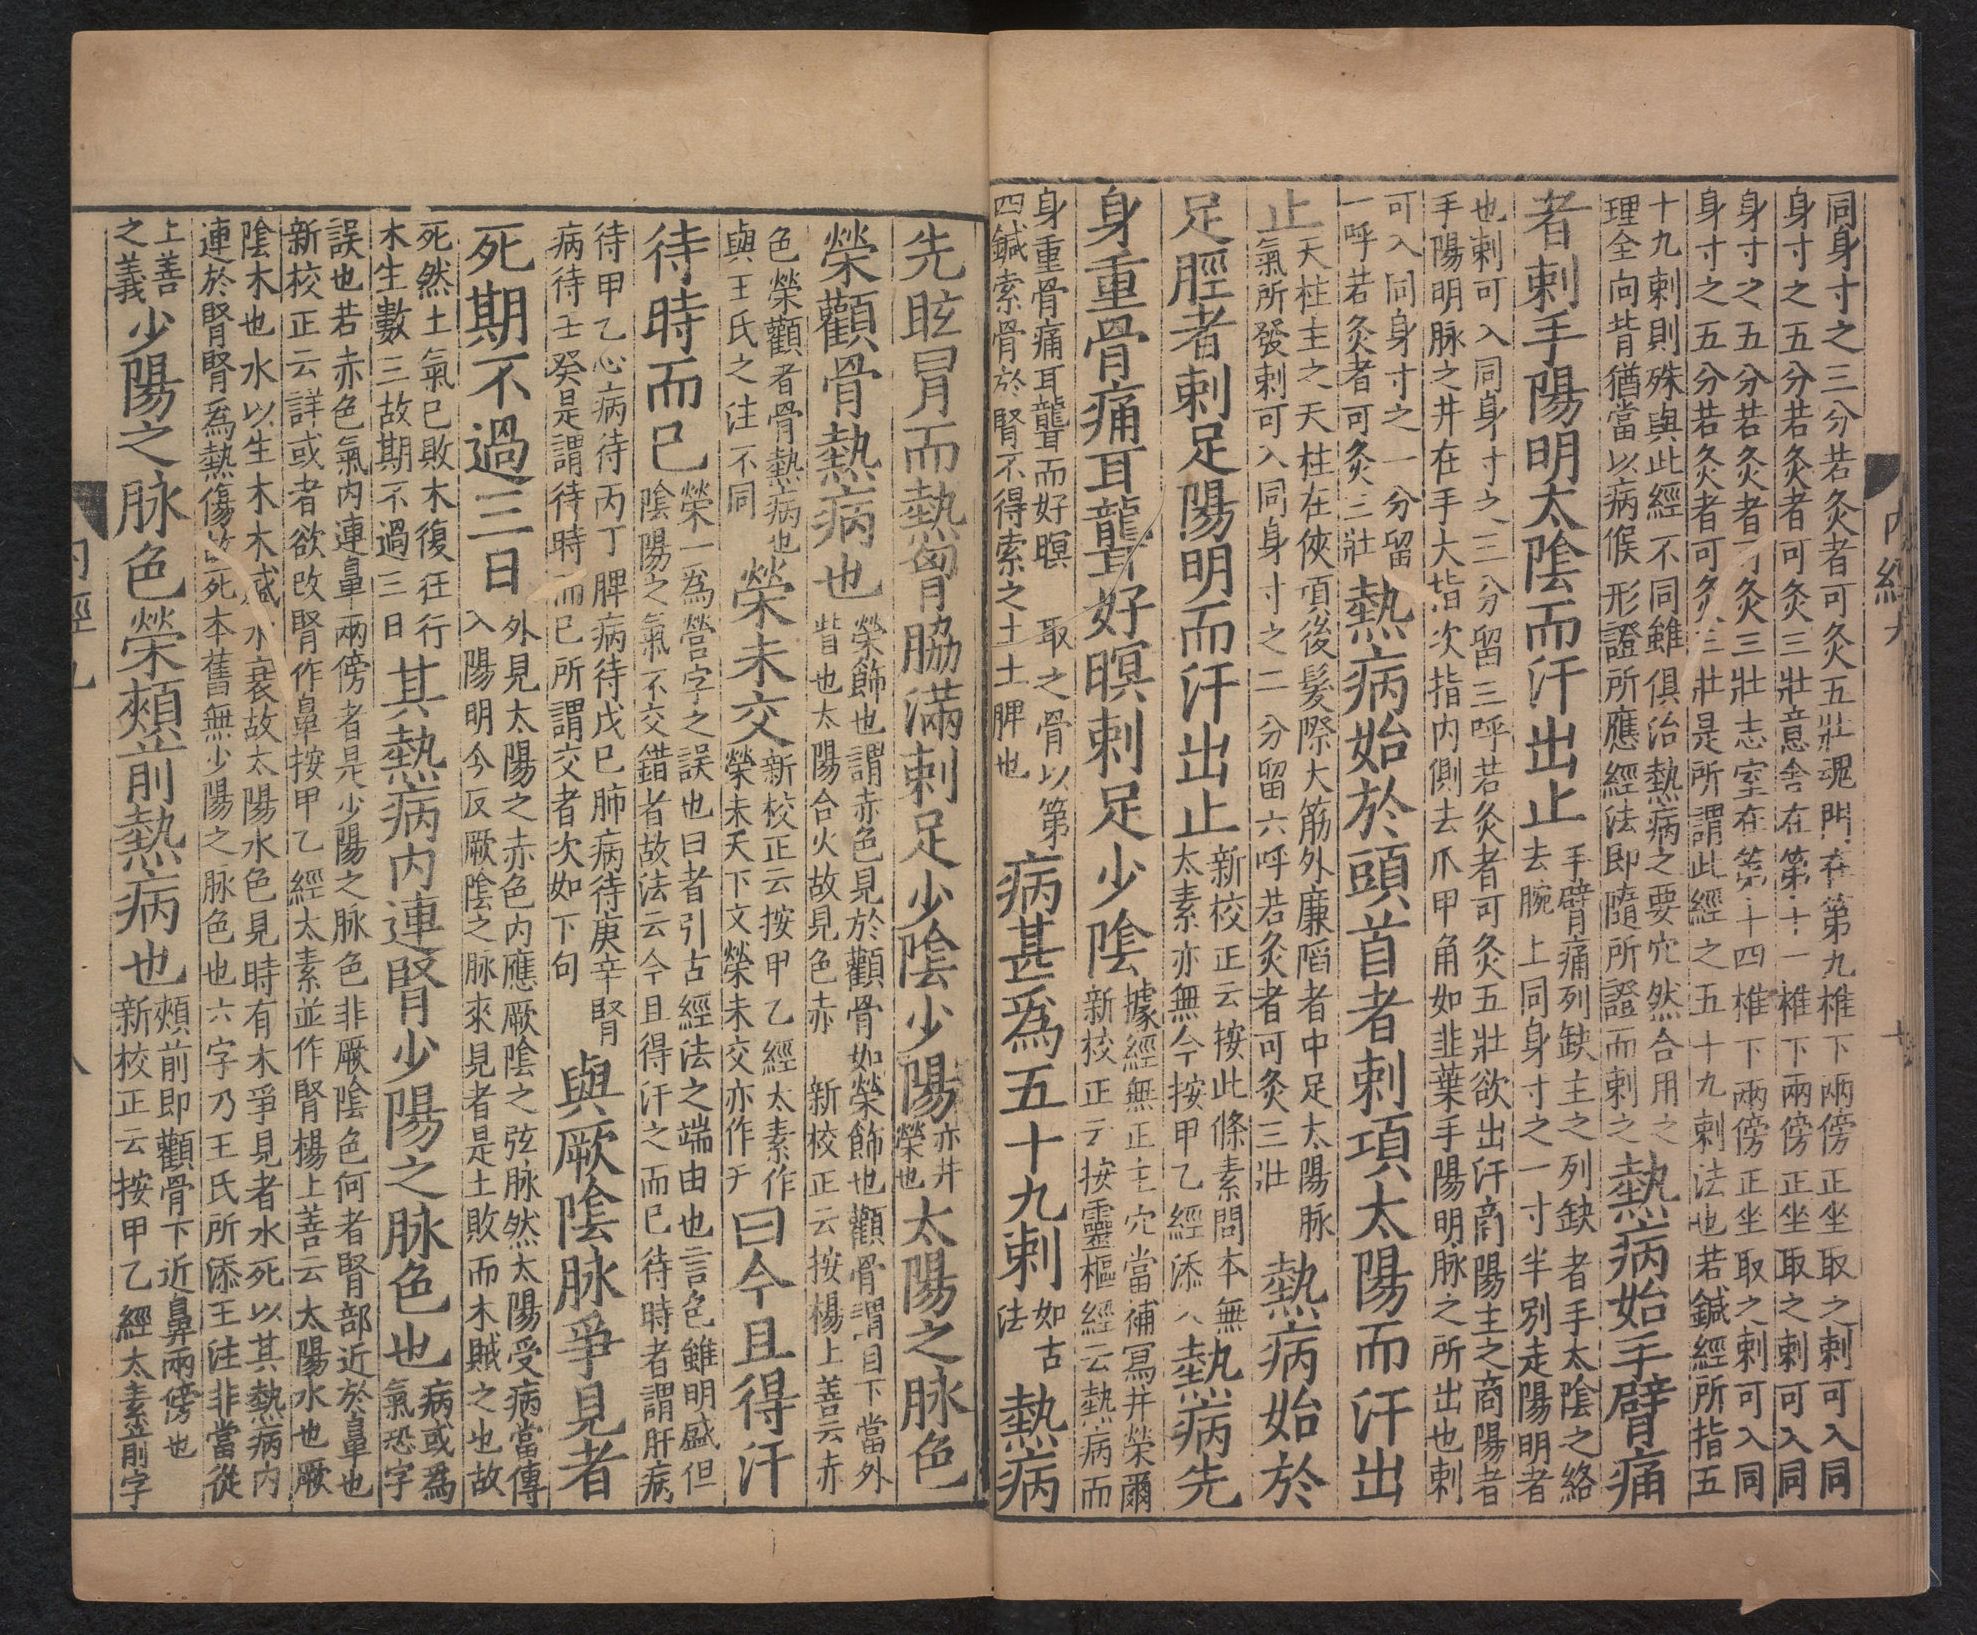 同身寸之三分若灸者可灸五壯魂門在第九椎下兩傍正坐取之刺可入同
身寸之五分若灸者可灸三壯意舍在第十一椎下兩傍正坐取之刺可入同
身寸之五分若灸者可灸三壯志室在第十四椎下兩傍正坐取之刺可入同
身寸之五分若灸者可灸三壯是所謂此經之五十九刺法也若鍼經所指五
十九刺則殊與此經不同雖俱治熱病之要穴然合用之
理全向背猶當以病候形證所應經法即隨所證而刺之
熱病始手臂痛
者刺手陽明太陰而汗出止
手臂痛列缺主之列缺者手太陰之絡
去腕上同身寸之一寸半別走陽明者
也刺可入同身寸之三分留三呼若灸者可灸五壯欲出汗商陽主之商陽者
手陽明脉之井在手大指次指内側去爪甲角如韭葉手陽明脉之所出也刺
可入同身寸之一分留
一呼若灸者可灸三壯
熱病始於頭首者刺項太陽而汗出
止
天柱主之天柱在俠項後髮際大筋外廉陷者中足太陽脉
氣所發刺可入同身寸之二分留六呼若灸者可灸三壯
熱病始於
足脛者刺足陽明而汗出止
新校正云按此條素問本無
太素亦無今按甲乙經添入
熱病先
身重骨痛耳聾好暝刺足少陰
據經無正主穴當補寫井滎爾
新校正云按靈樞經云熱病而
身重骨痛耳聾而好暝取之骨以第
四鍼索骨於腎不得索之土土脾也
病甚爲五十九刺
如古
法
熱病
先眩冐而熱胷脇滿刺足少陰少陽
亦井
滎也
太陽之脉色
榮顴骨熱病也
榮飾也謂赤色見於顴骨如榮飾也顴骨謂目下當外
眥也太陽合火故見色赤 新校正云按楊上善云赤
色榮顴者骨熱病也
與王氏之注不同
榮未交
新校正云按甲乙經太素作
榮未夭下文榮未交亦作夭
曰今且得汗
待時而已
榮一爲營字之誤也曰者引古經法之端由也言色雖明盛但
陰陽之氣不交錯者故法云今且得汗之而已待時者謂肝病
待甲乙心病待丙丁脾病待戊巳肺病待庚辛腎
病待壬癸是謂待時而已所謂交者次如下句
與厥陰脉爭見者
死期不過三日
外見太陽之赤色内應厥陰之弦脉然太陽受病當傳
入陽明今反厥陰之脉來見者是土敗而木賊之也故
死然土氣已敗木復狂行
木生數三故期不過三日
其熱病内連腎少陽之脉色也
病或爲
氣恐字
誤也若赤色氣内連鼻兩傍者是少陽之脉色非厥陰色何者腎部近於鼻也
新校正云詳或者欲改腎作鼻按甲乙經太素並作腎楊上善云太陽水也厥
陰木也水以生木木盛水衰故太陽水色見時有木爭見者水死以其熱病内
連於腎腎爲熱傷故死本舊無少陽之脉色也六字乃王氏所添王注非當從
上善
之義
少陽之脉色榮頰前熱病也
頰前即顴骨下近鼻兩傍也
新校正云按甲乙經太素前字
內經九
八